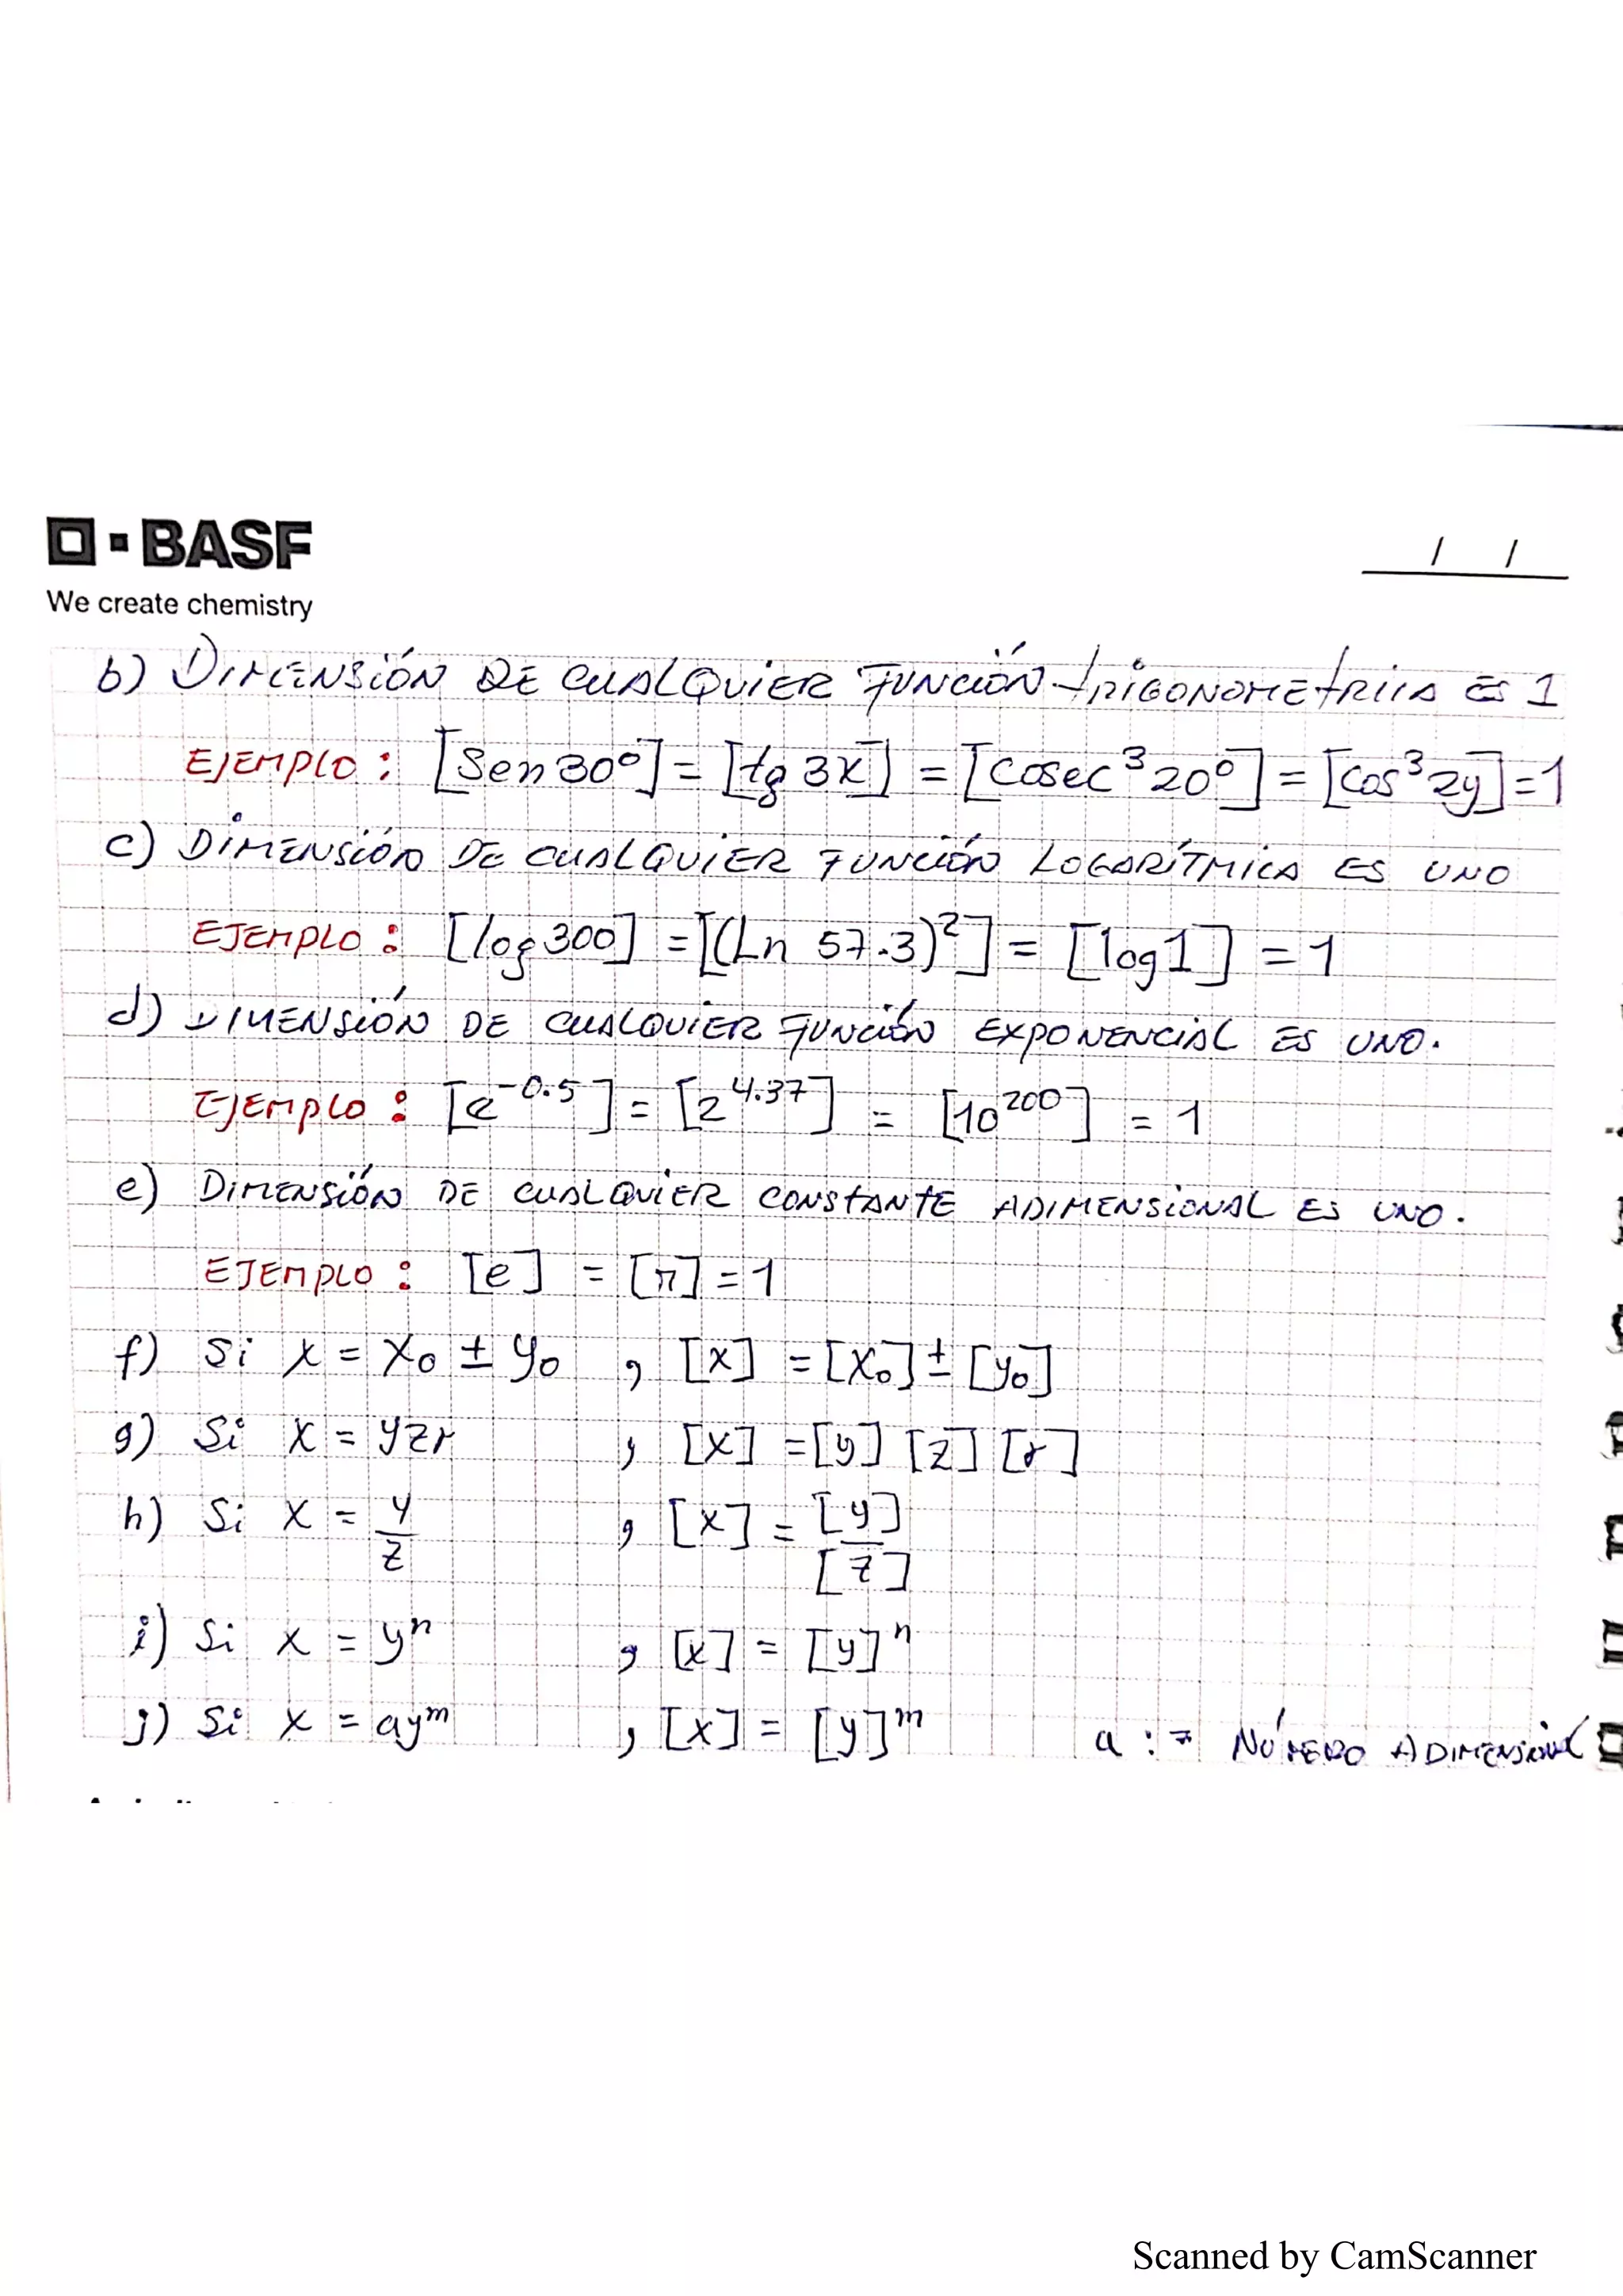 BASF
We create chemistry
/ /
b) DIMENSIÓN DE CUALQUIER FUNCIÓN trigonométrica es 1
EJEMPLO: [Sen 30°] = [tg 3x] = [cosec³ 20°] = [cos³ 2y] = 1
c) DIMENSIÓN DE CUALQUIER FUNCIÓN LOGARÍTMICA ES UNO
EJEMPLO: [log 300] = [(Ln 57.3)²] = [log 1] = 1
d) DIMENSIÓN DE CUALQUIER FUNCIÓN EXPONENCIAL ES UNO.
EJEMPLO: [e^-0.5] = [2^4.37] = [10^200] = 1
e) DIMENSIÓN DE CUALQUIER CONSTANTE ADIMENSIONAL ES UNO.
EJEMPLO: [e] = [π] = 1
f) Si x = x₀ ± y₀ , [x] = [x₀] ± [y₀]
g) Si x = yzr , [x] = [y] [z] [r]
h) Si x = y/z , [x] = [y]/[z]
i) Si x = yⁿ , [x] = [y]ⁿ
j) Si x = ay^m , [x] = [y]^m a := NÚMERO ADIMENSIONAL
Scanned by CamScanner